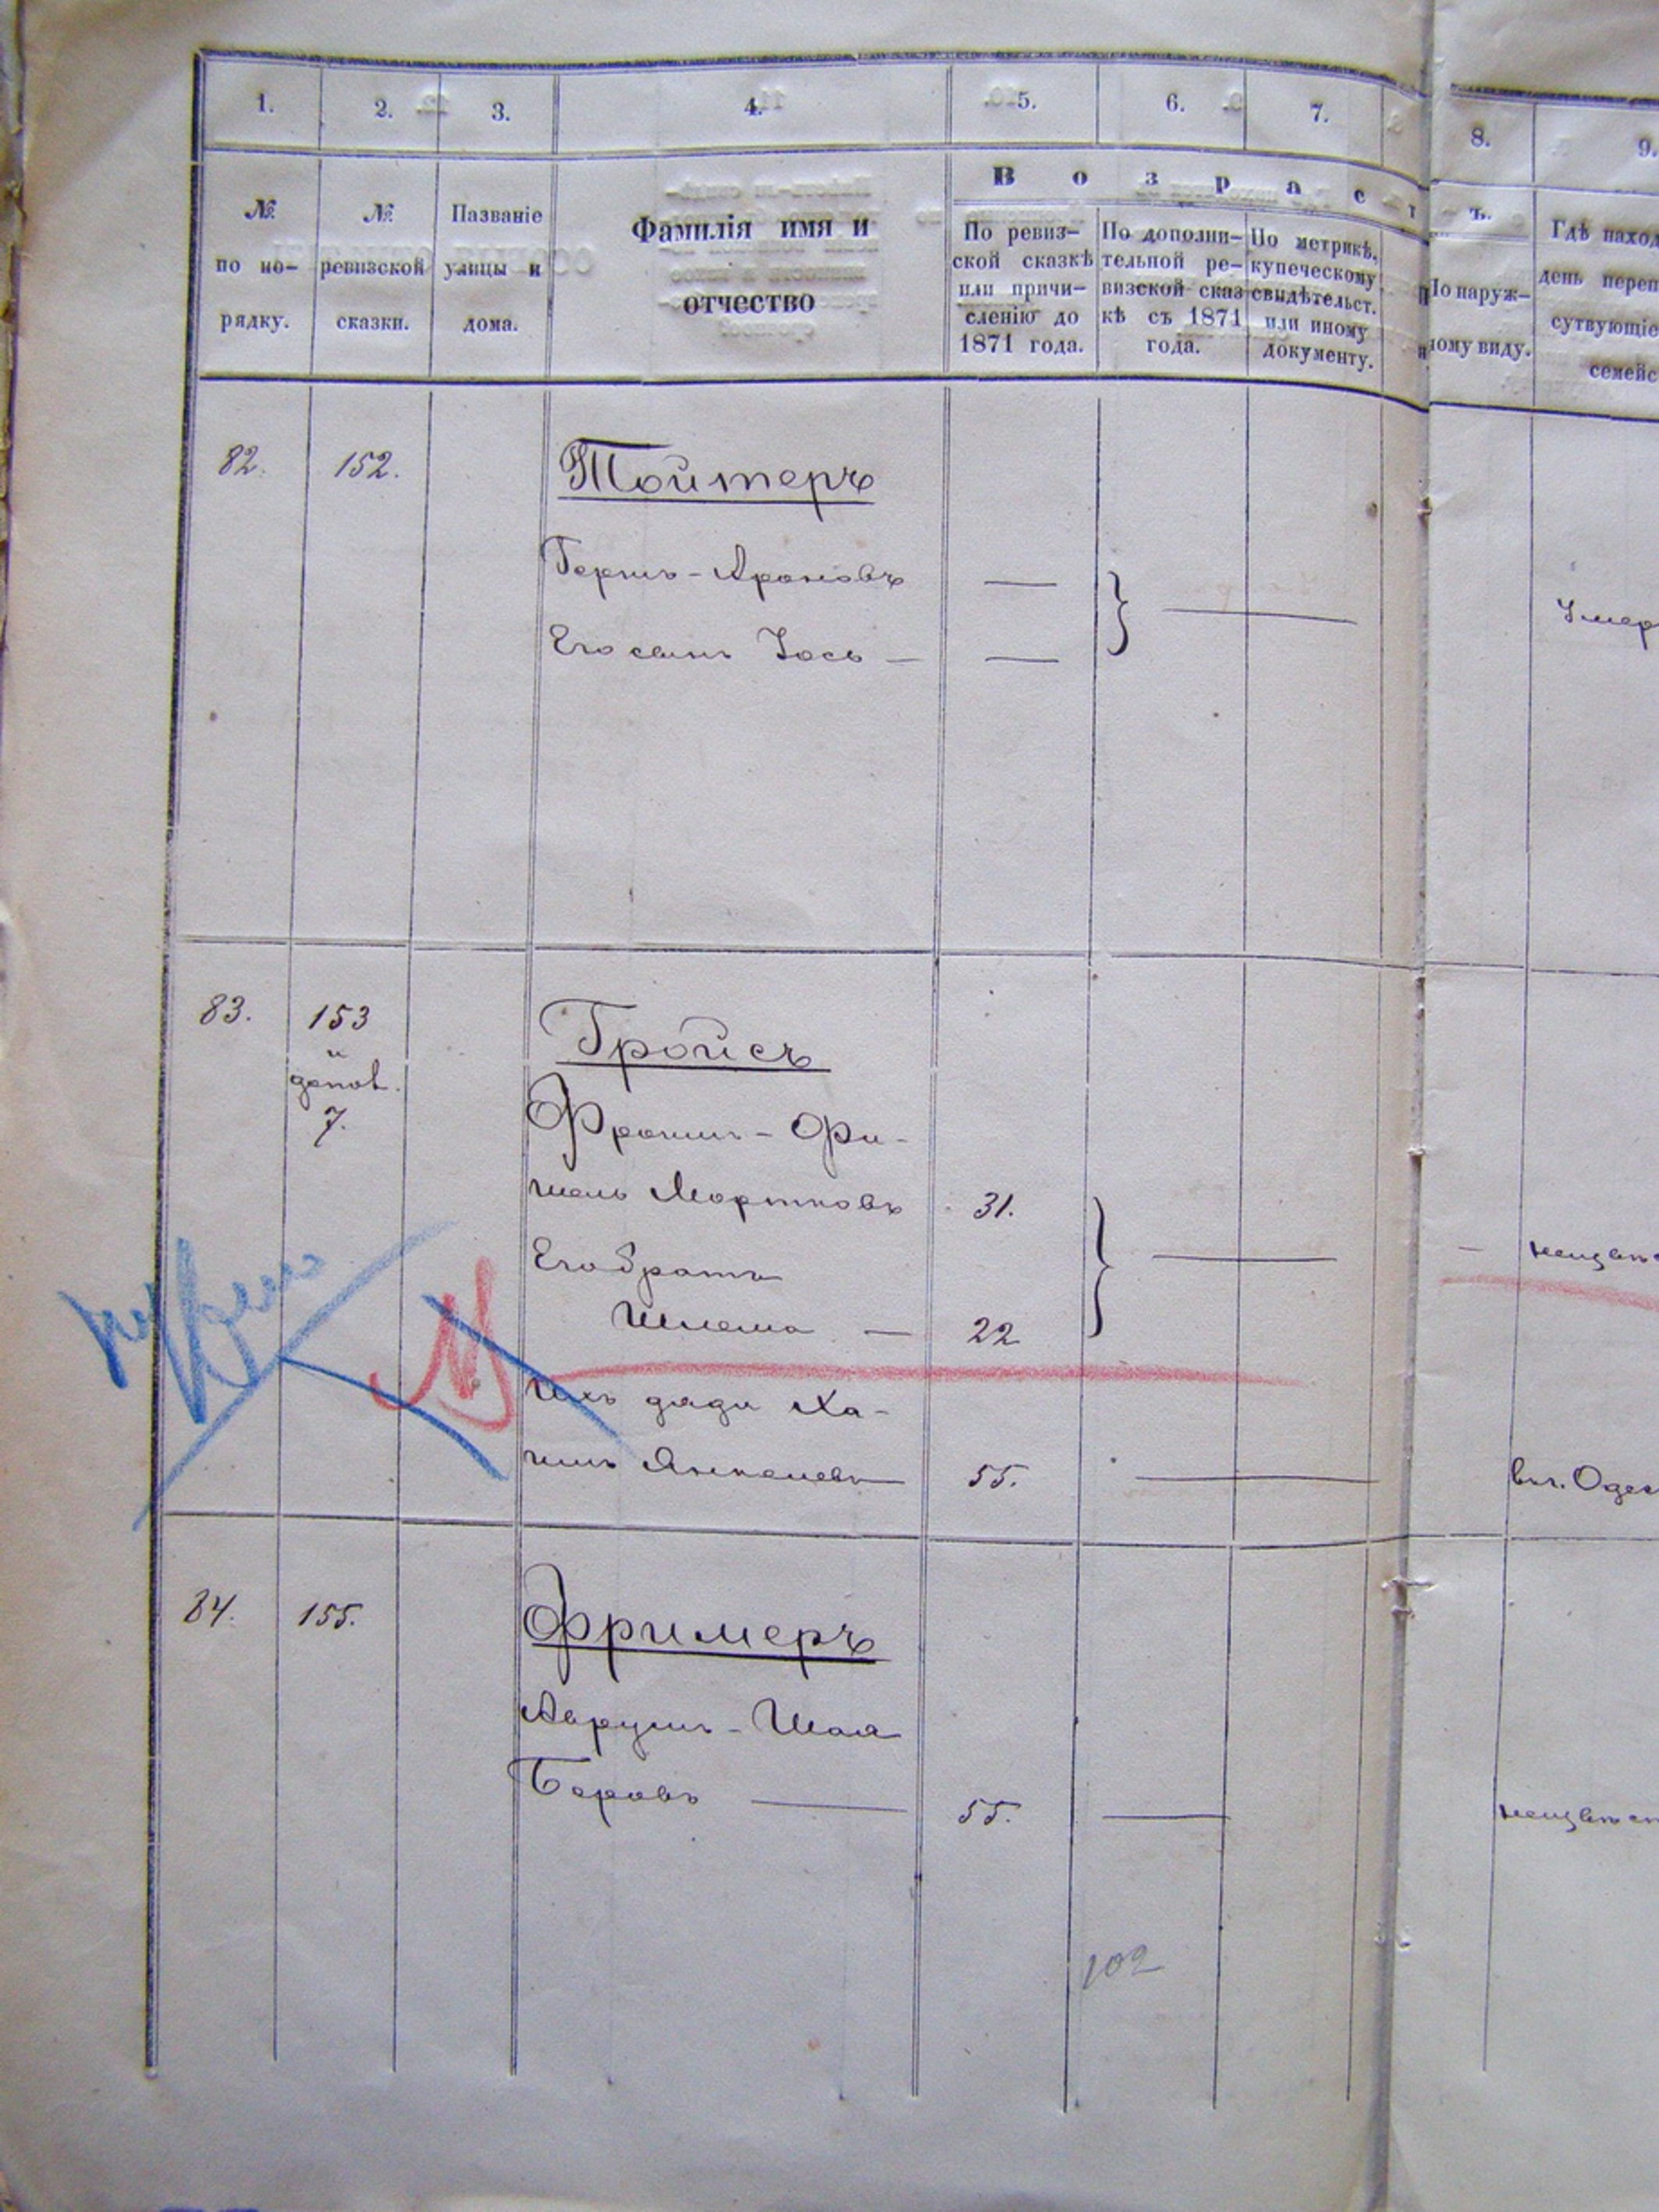 1. 2. 3. 4. 5. 6. 7. 8. 9.
№ по порядку.
№ ревизской сказки.
Названіе улицы и дома.
Фамилія имя и отчество
Возрастъ.
По ревиз-
ской сказкѣ
или причи-
сленію до
1871 года.
По дополни-
тельной ре-
визской сказ
кѣ съ 1871
года.
По метрикѣ,
купеческому
свидѣтельст.
или иному
документу.
По наруж-
ному виду.
Гдѣ наход
день переп
сутвующіе
семейс
82. 152. Тойтеръ
Гершъ-Ароновъ —
Его сынъ Іось — —
Умер
83. 153 Гройсъ
и
допол.
7.
Фроимъ-Фи-
шель Мортковъ 31.
Его братъ
Шлема — 22
неизвѣс
Ихъ дядя Ха-
имъ Янкелевъ 55.
въ г. Одес
84. 155. Фримеръ
Аврумъ-Шая
Беровъ — 55. —
неизвѣст
102